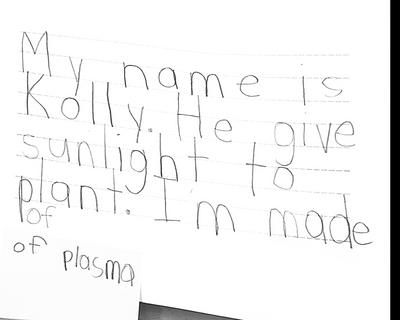 My name is
Kolly. He give
sunlight to
plant. Im made
of
of plasma